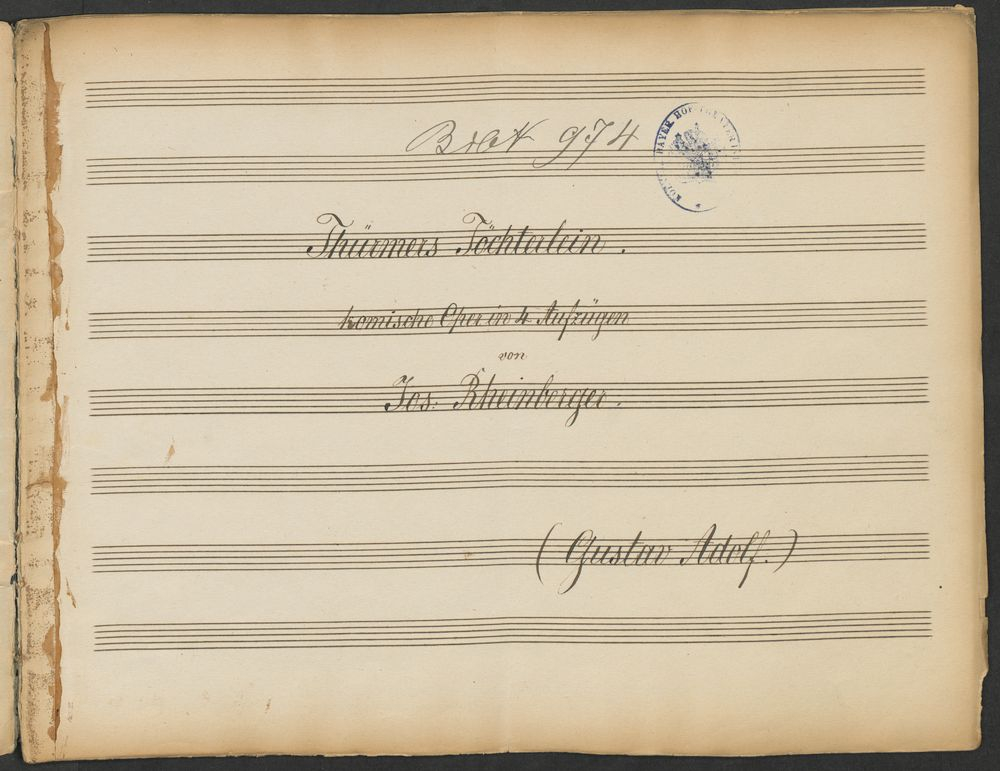 974
BAYER. HOF
Thürmers Töchterlein.
komische Oper in 4 Aufzügen
von
Jos. Rheinberger.
(Gustav Adolf.)